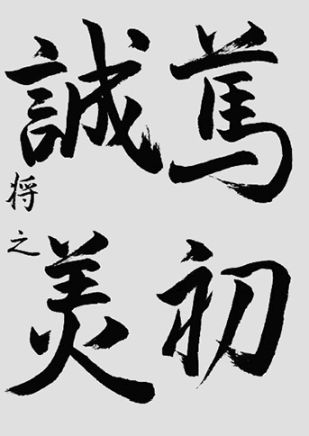 篤初
誠美
将之